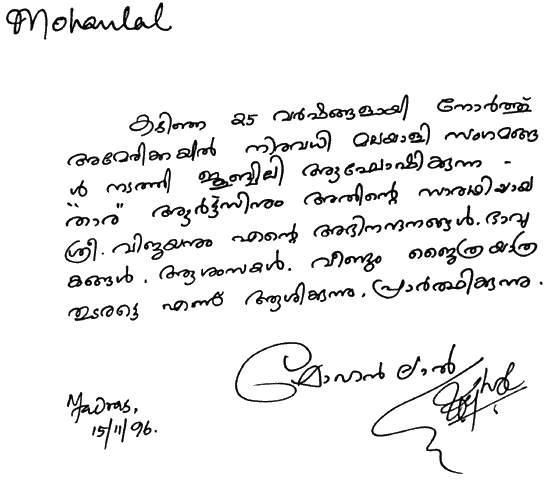 Mohanlal
കഴിഞ്ഞ 25 വർഷങ്ങളായി നോർത്ത്
അമേരിക്കയിൽ നിരവധി മലയാളി സംഗമങ്ങ
ൾ നടത്തി ജൂബ്ബിലി ആഘോഷിക്കുന്ന -
"താര" ആർട്ട്സിനും അതിന്റെ സാരഥിയായ
ശ്രീ. വിജയനും എന്റെ അഭിനന്ദനങ്ങൾ. ഭാവു
കങ്ങൾ. ആശംസകൾ. വീണ്ടും ജൈത്രയാത്ര
തുടരട്ടെ എന്ന് ആശിക്കുന്നു. പ്രാർത്ഥിക്കുന്നു.
മോഹൻ ലാൽ
Madras,
15/11/96.